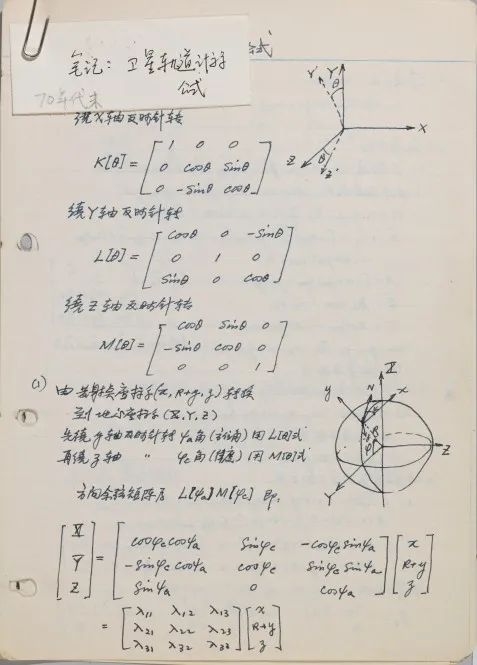 笔记: 卫星轨道计算
公式
70年代末
公式
绕X轴反时针转
K[θ] = [1 0 0
0 cosθ sinθ
0 -sinθ cosθ]
Y' Y θ X Z θ Z'
绕Y轴反时针转
L[θ] = [cosθ 0 -sinθ
0 1 0
sinθ 0 cosθ]
绕Z轴反时针转
M[θ] = [cosθ sinθ 0
-sinθ cosθ 0
0 0 1]
(1) 由发射点座标系(x, R+y, z)转换
到地心座标系(X, Y, Z)
先绕y轴反时针转ψa角(方位角)用L[θ]式
再绕z轴 〃 φc角(纬度)用M[θ]式
X y N x Z Y
方向余弦矩阵是 L[ψa]M[φc] 即:
[X
Y
Z] = [cosφc cosψa sinφc -cosφc sinψa
-sinφc cosψa cosφc sinφc sinψa
sinψa 0 cosψa] [x
R+y
z]
= [λ11 λ12 λ13
λ21 λ22 λ23
λ31 λ32 λ33] [x
R+y
z]